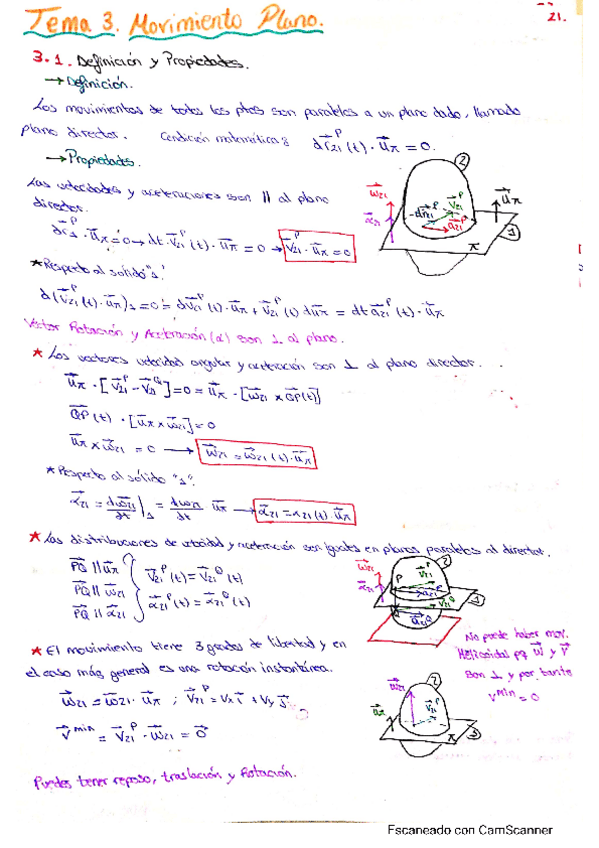 21.
Tema 3. Movimiento Plano.
3.1. Definición y Propiedades.
→ Definición.
Los movimientos de todos los ptos son paralelos a un plano dado, llamado
plano director. Condición matemática: dr₂₁ᴾ(t)·u_π = 0.
→ Propiedades.
Las velocidades y aceleraciones son // al plano
director.
dr₂₁ᴾ·u_π = 0 → dt·v₂₁ᴾ(t)·u_π = 0 → v₂₁ᴾ·u_π = 0
2
ω₂₁ α₂₁ dr₂₁ᴾ v₂₁ᴾ a₂₁ᴾ u_π
π 1
★ Respecto al sólido "1"
d(v₂₁ᴾ(t)·u_π)₁ = 0 = dv₂₁ᴾ(t)·u_π + v₂₁ᴾ(t) du_π = dt a₂₁ᴾ(t)·u_π
Vector Rotación y Aceleración (α) son ⊥ al plano.
★ Los vectores velocidad angular y aceleración son ⊥ al plano director.
u_π·[v₂₁ᴾ - v₂₁Q] = 0 = u_π·[ω₂₁ × QP(t)]
QP(t)·[u_π × ω₂₁] = 0
u_π × ω₂₁ = 0 → ω₂₁ = ω₂₁(t)·u_π
★ Respecto al sólido "1".
α₂₁ = dω₂₁/dt |₁ = dω₂₁/dt u_π → α₂₁ = α₂₁(t)·u_π
★ Las distribuciones de velocidad y aceleración son iguales en planos paralelos al director.
PQ // u_π
PQ // ω₂₁
PQ // α₂₁
v₂₁ᴾ(t) = v₂₁Q(t)
α₂₁ᴾ(t) = α₂₁Q(t)
ω₂₁ 2 α₂₁ P v₂₁ᴾ a₂₁ᴾ v₂₁Q a₂₁Q
★ El movimiento tiene 3 grados de libertad y en
el caso más general es una rotación instantánea.
ω₂₁ = ω₂₁·u_π ; v₂₁ᴾ = vₓ i + vᵧ j
v min = v₂₁ᴾ·ω₂₁ = 0
No puede haber mov.
Helicoidal pq ω y v
son ⊥ y por tanto
v min = 0
ω₂₁ 2 u_π v₂₁ᴾ π
Puedes tener reposo, traslación y Rotación.
Escaneado con CamScanner